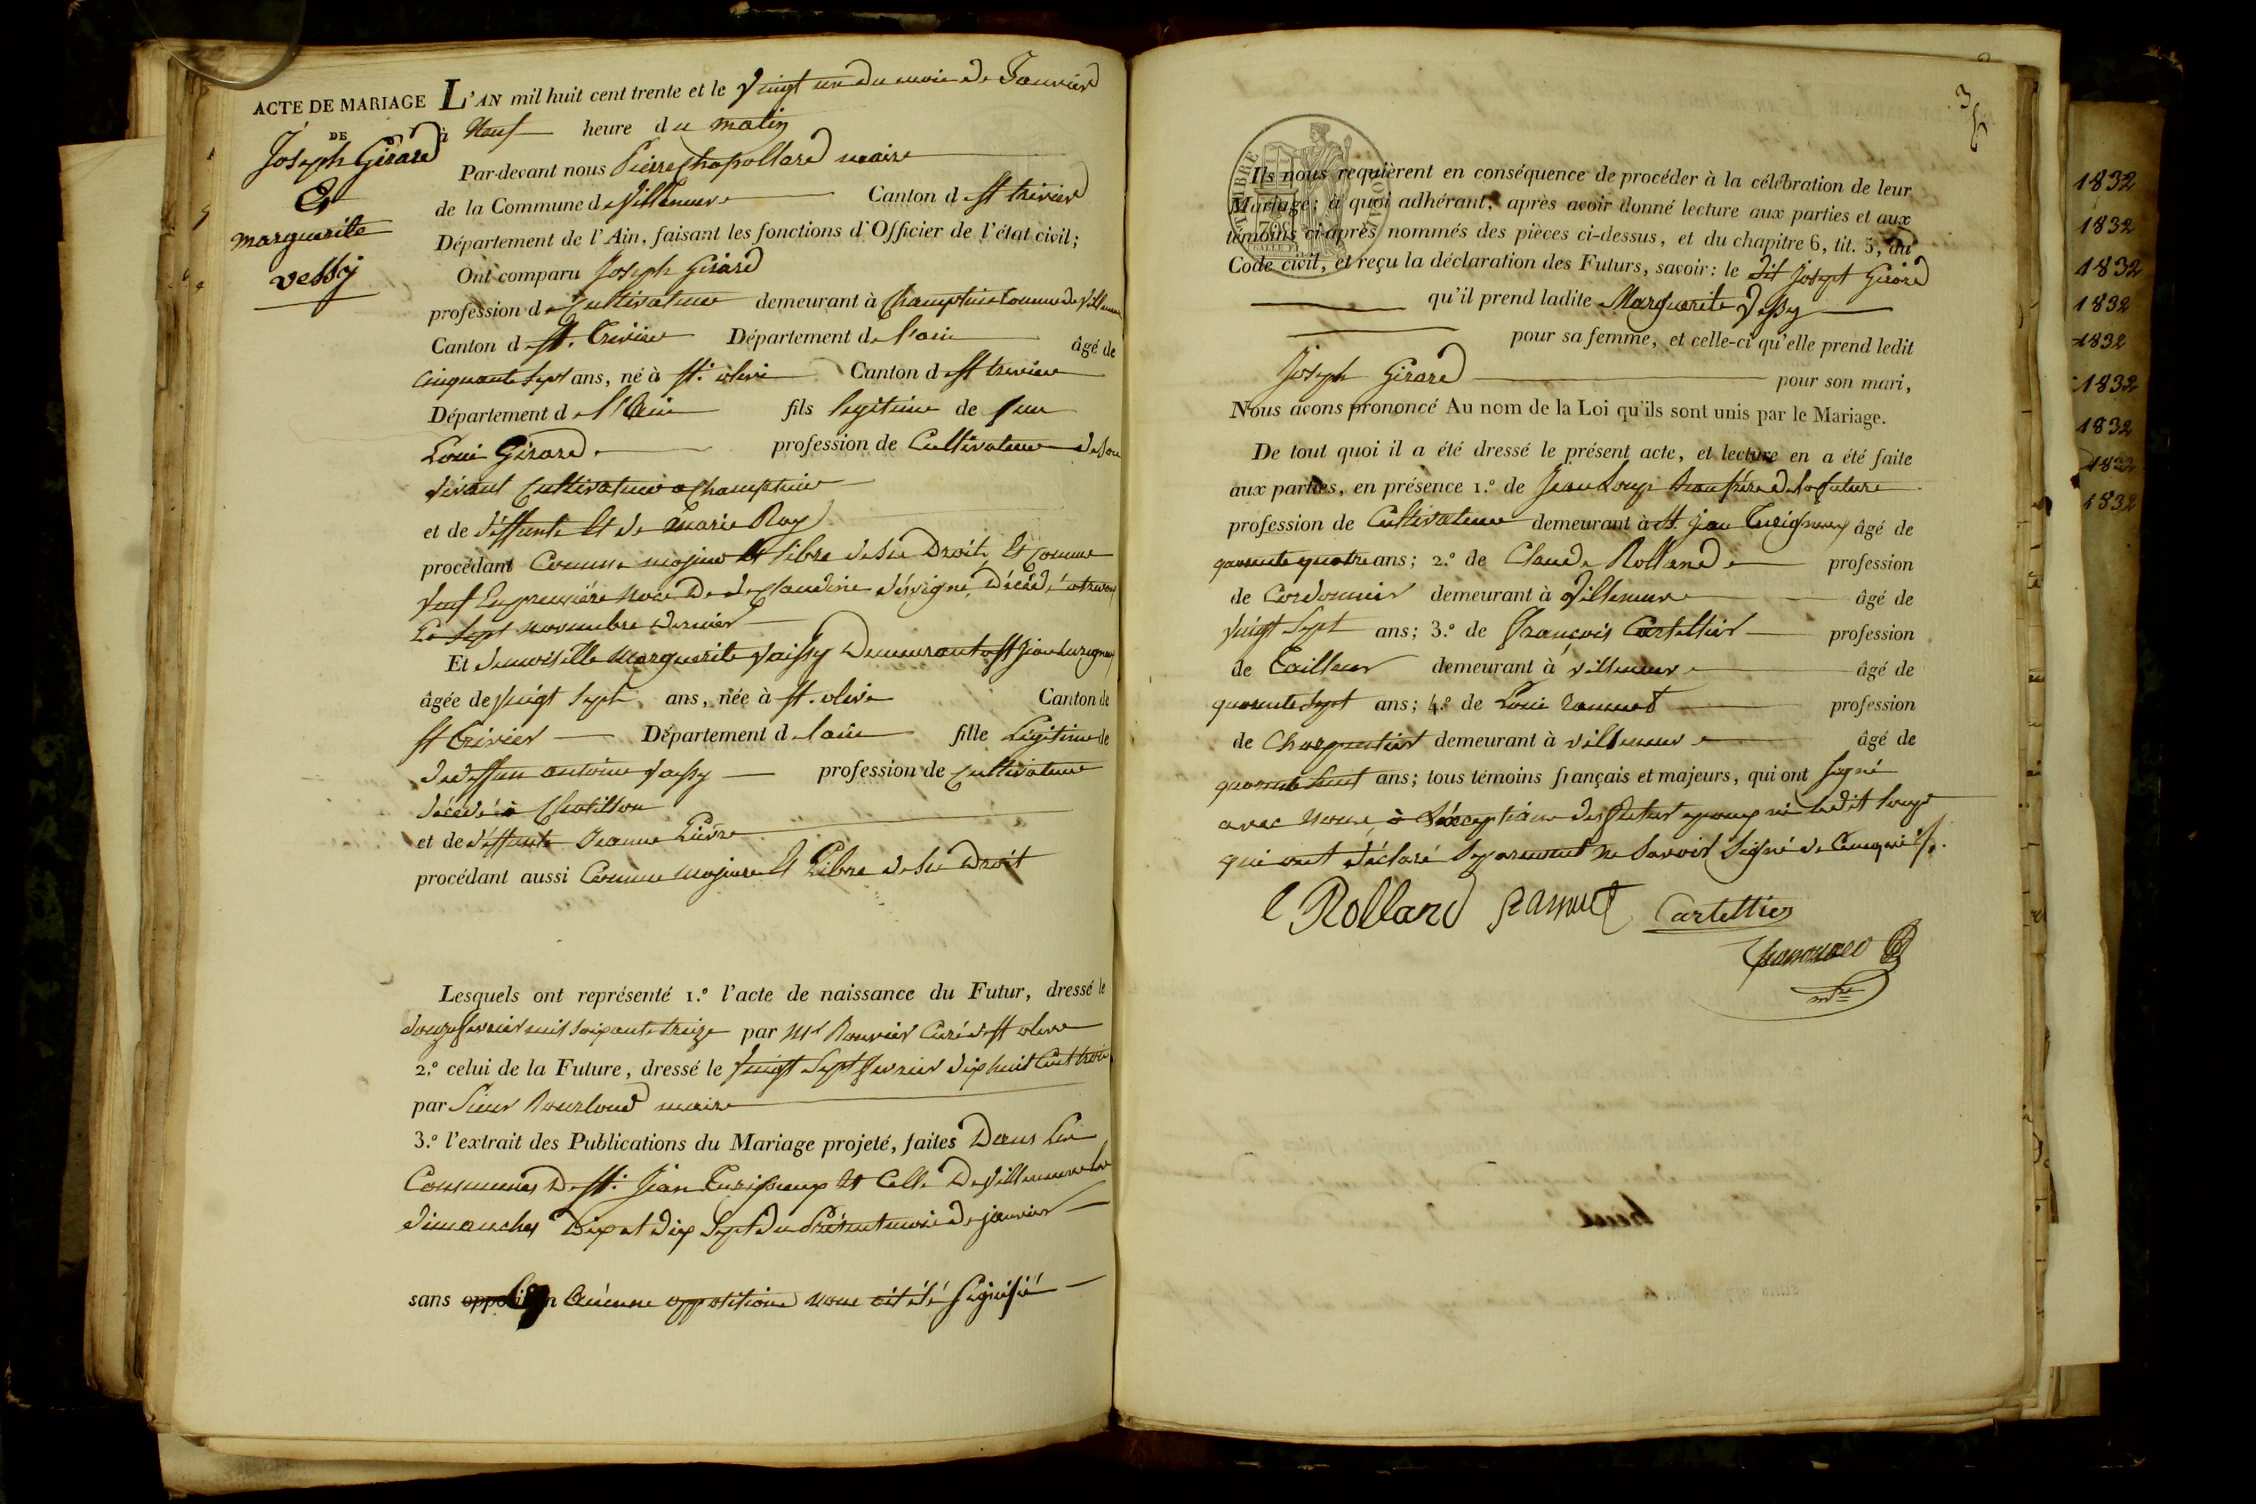 ACTE DE MARIAGE
DE
Joseph Girard
Et
marguerite
vessy
L'AN mil huit cent trente et le vingt un du mois de Janvier
à Neuf heure du matin
Par-devant nous Pierre Chapollard maire
de la Commune de Villeneuve Canton d st trivier
Département de l'Ain, faisant les fonctions d'Officier de l'état civil;
Ont comparu Joseph Girard
profession de Cultivateur demeurant à Champtein Commune de Villeneuve
Canton d st. Trivier Département de l'ain âgé de
cinquante sept ans, né à st. olive Canton d st trivier
Département de l'Ain fils legitime de feu
Loui Girard profession de Cultivateur de son
vivant Cultivateur a Champtein
et de déffunte Et de Marie Ray
procédant Comme majeur Et libre de Ses Droits Et Comme
veuf En première Noce De de Claudine dévigne, Décédé
Le Sept novembre Dernier
Et demoiselle Marguerite Vaissy Demeurant a st jean turigneux
âgée de vingt Sept ans, née à st. olive Canton de
st Trivier Département de l'ain fille Légitime de
de deffun antoine vaissy profession de Cultivateur
décédé à Chatillon
et de déffunte Jeanne Pievre
procédant aussi Comme majeure Et Libre de Ses Droit
Lesquels ont représenté 1.º l'acte de naissance du Futur, dressé le
douze fevrier mil soixante treize par Mr Bouvier Curé de st olive
2.º celui de la Future, dressé le vingt Sept fevrier dix huit Cent trois
par Sieur Bourloud maire
3.º l'extrait des Publications du Mariage projeté, faites Dans Les
Communes De st. Jean Turigneux Et Celle De Villeneuve les
dimanches Dix et dix Sept du Présent mois de janvier
sans opposition Aucune opposition nous ait été Signifié
3
TIMBRE ROYAL
Ils nous requièrent en conséquence de procéder à la célébration de leur
Mariage; à quoi adhérant, après avoir donné lecture aux parties et aux
témoins ci-après nommés des pièces ci-dessus, et du chapitre 6, tit. 5, du
Code civil, et reçu la déclaration des Futurs, savoir: le dit Joseph Girard
qu'il prend ladite Marguerite Vessy
pour sa femme, et celle-ci qu'elle prend ledit
Joseph Girard pour son mari,
Nous avons prononcé Au nom de la Loi qu'ils sont unis par le Mariage.
De tout quoi il a été dressé le présent acte, et lecture en a été faite
aux parties, en présence 1.º de Jean Loup beau frère de la future
profession de Cultivateur demeurant à st. jean Turigneux âgé de
quarente quatre ans; 2.º de Claude Rolland profession
de Cordonnier demeurant à Villeneuve âgé de
vingt Sept ans; 3.º de François Cartellier profession
de Tailleur demeurant à villeneuve âgé de
quarente Sept ans; 4.º de Loui ramuet profession
de Charpentier demeurant à villeneuve âgé de
quarente huit ans; tous témoins français et majeurs, qui ont signé
avec nous à l'exception des futur epoux ni ledit Loup
qui ont déclaré Séparement ne Savoir Signé de Ce enquis.
C Rolland Ramuet Cartellier
Chapollard
mre
1832
1832
1832
1832
1832
1832
1832
1832
1832